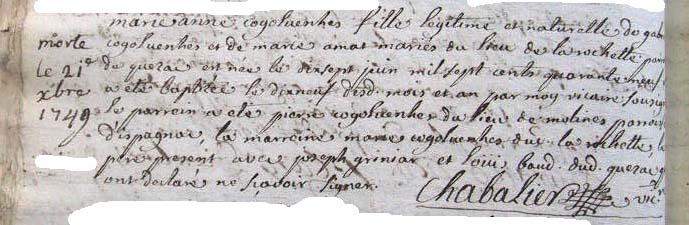 marie anne cogoluenhes fille legitime et naturelle de gab
cogoluenhes et de marie amat mariés du lieu de la rochette
de quezac est née le dixsept juin mil sept cents quarante neuf
a eté baptisée le dixneuf desd. mois et an par moy vicaire soussig
le parrein a eté pierre cogoluenhes du lieu de molines
d'ispagnac, la marreine marie cogoluenhes dud. la rochette, le
pere present avec joseph grousar et loui baud dud. quezac q
ont declaré ne sçavoir signer.
Chabalier vic.
morte
le 21e
xbre
1749